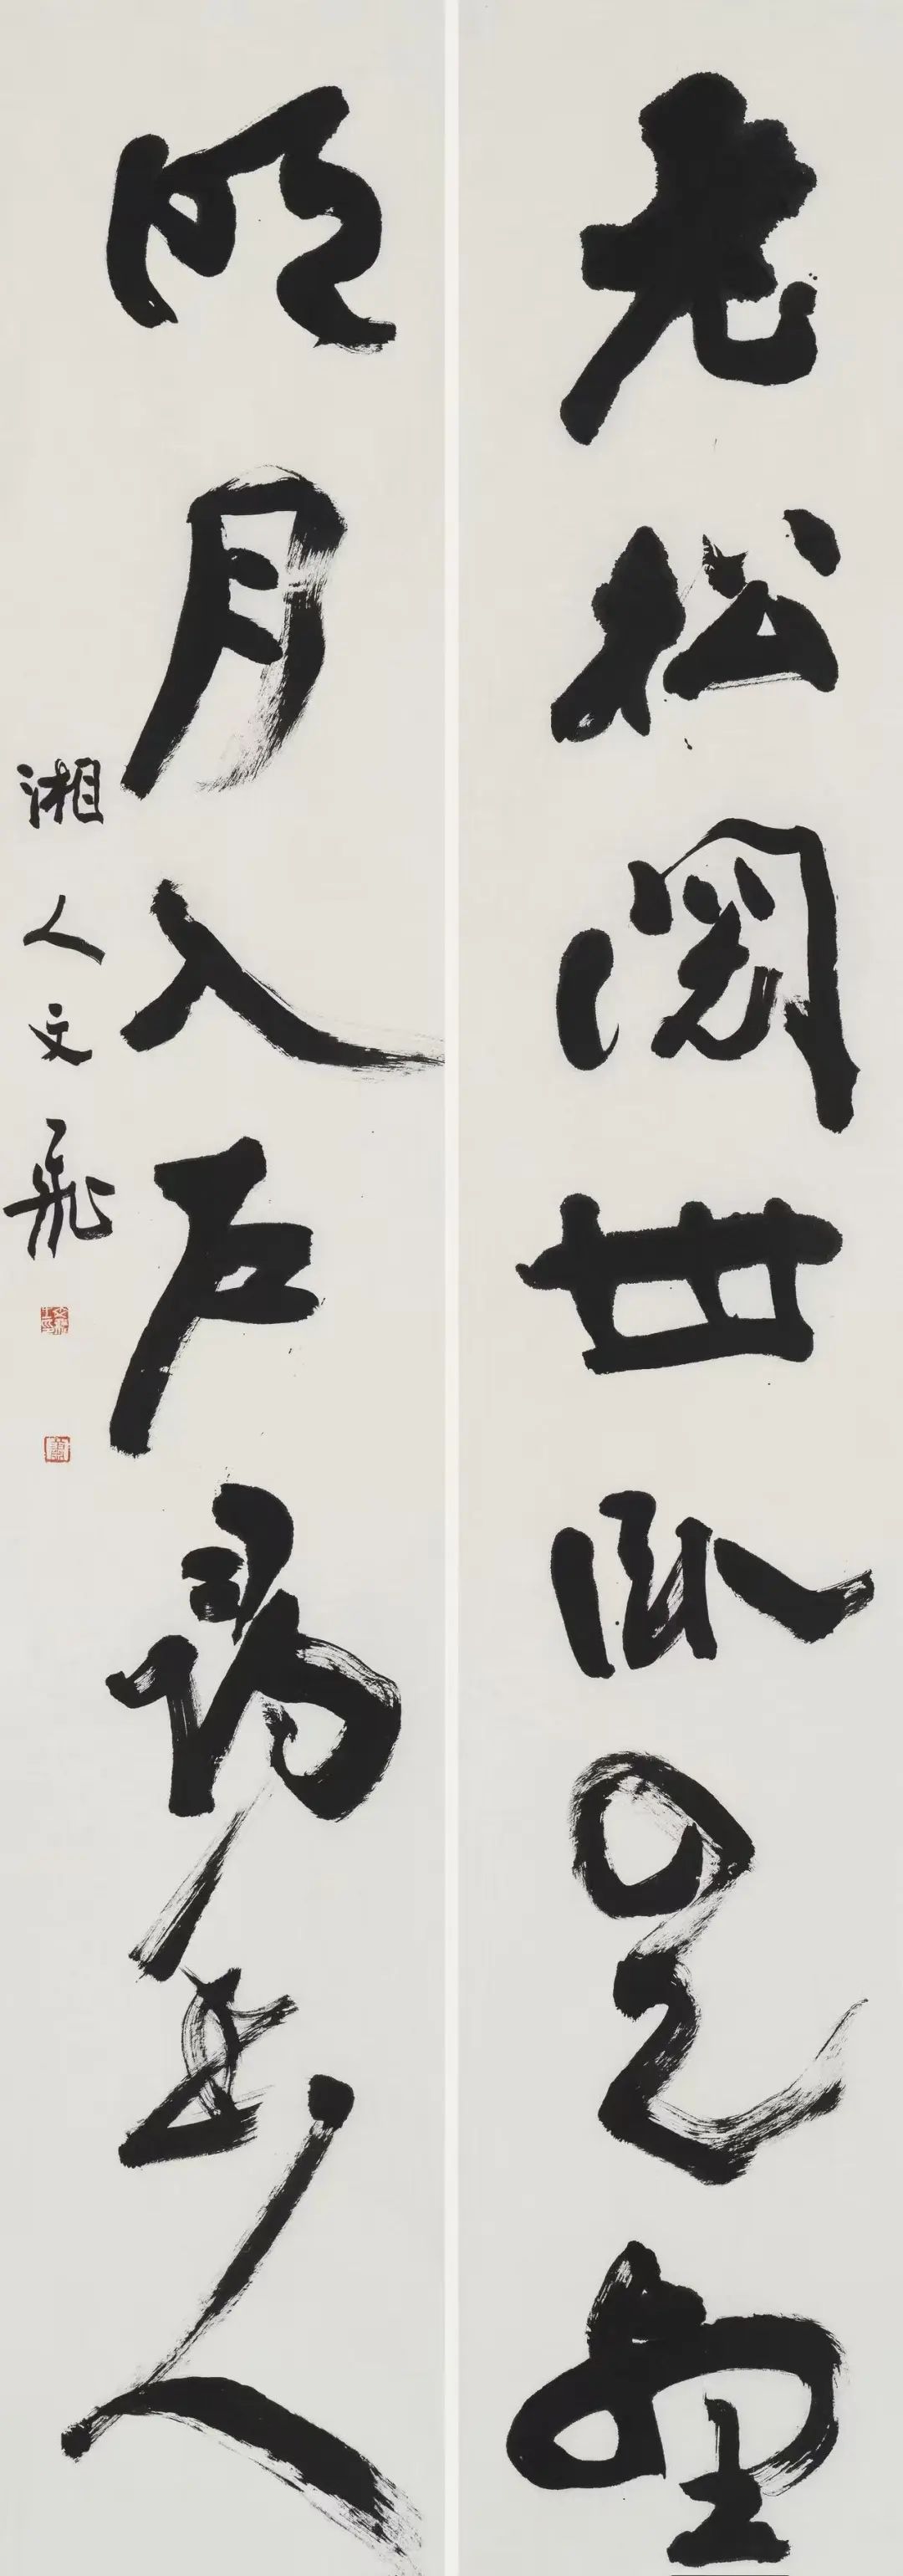 老松阅世卧云壑
明月入户寻幽人
湘人文飛